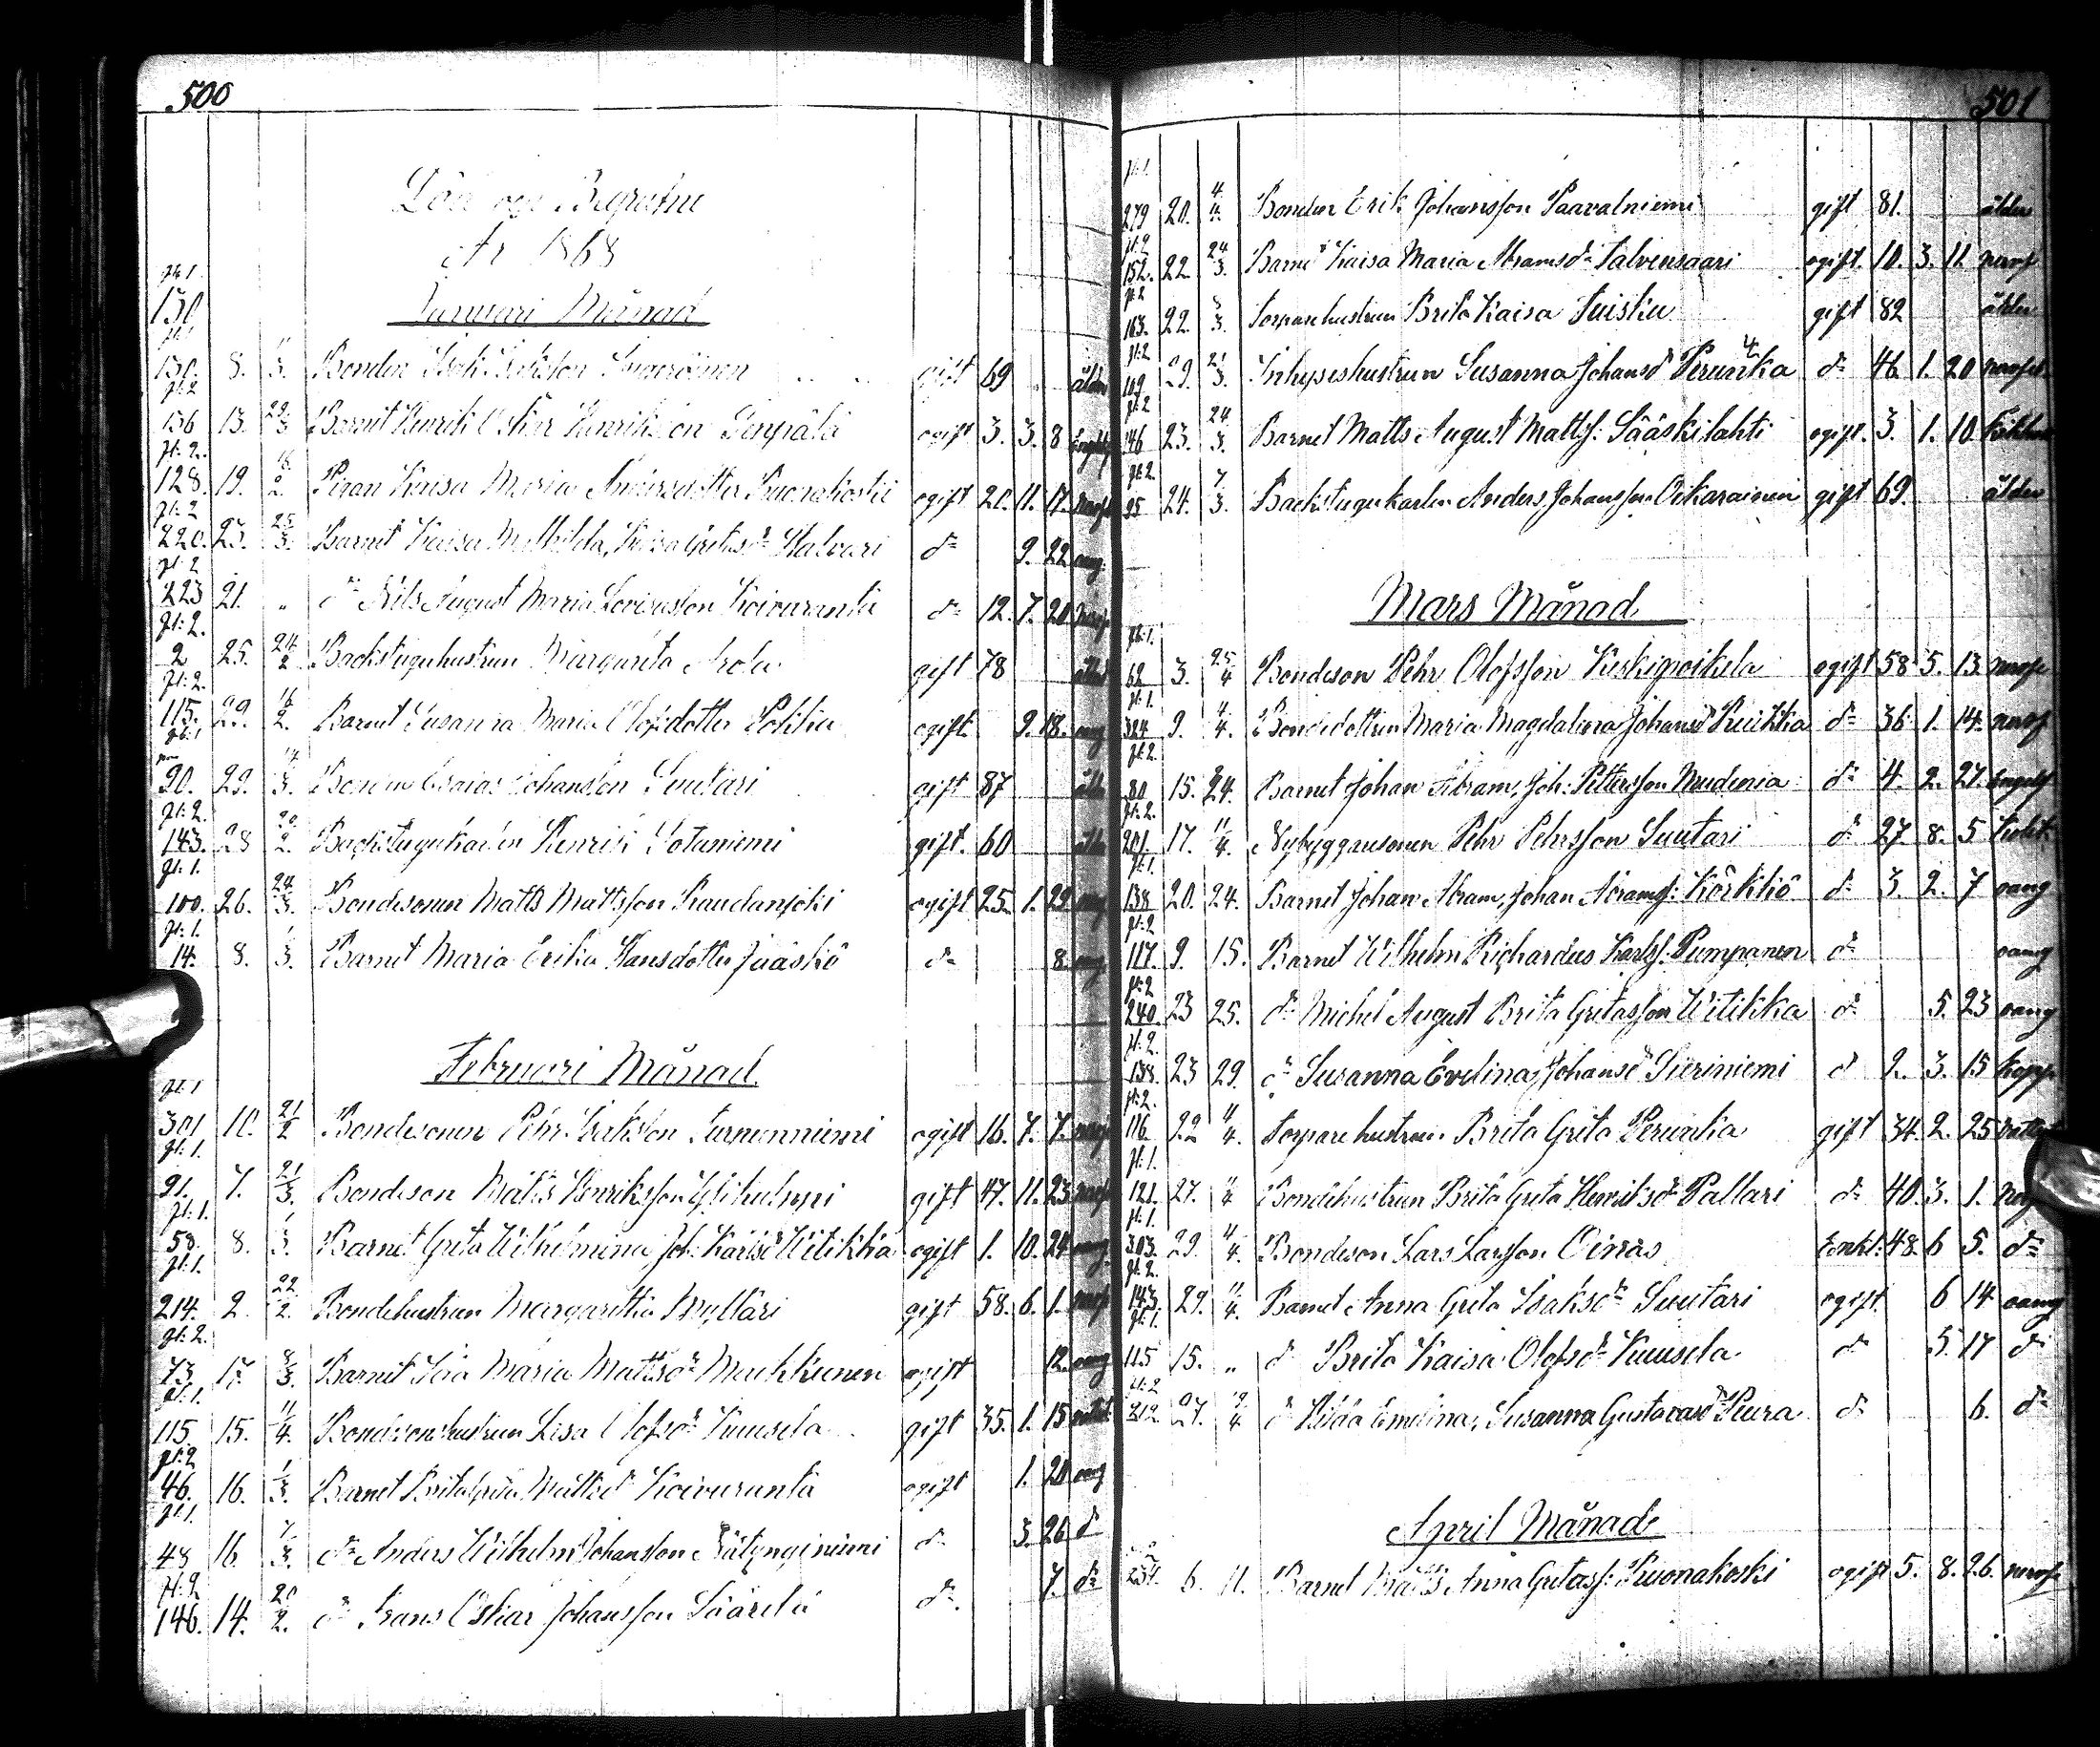 500
Döde och Begrafne
År 1868
pl: 1
130
Januari Månad
130. 8. 1/3. Bonden Isak Eriksson gift 69 ålder
pl: 2
136 13. 29/3 Barnet Henrik Oskar Henriksson ogift 3. 3. 8
pl: 2.
128. 19. 16/2. Pigan Kaisa Maria Andersdotter Kuonakoski ogift 20. 11. 17. nerf
pl: 2
220. 23. 25/3. Barnet Kaisa Mathilda, Kaisa Gretasdr Halvari dr 9. 22 oang.
pl: 2
223 21. „ dr Nils August Maria Lovisasson Koivuranta dr 12. 7. 20 nerf
pl: 2.
2 25. 24/2 Backstuguhustrun Margareta Arola gift 78 ålder
pl: 2.
115. 29. 16/2. Barnet Susanna Maria Olofsdotter ogift. 9. 18. oang
pl: 1
90. 29. 14/3. Bonden Esaias Johansson Suutari gift 87 ålder
pl: 2.
143. 28 20/2. Backstugukarlen Henrik Sotaniemi gift. 60 ålder
pl: 1.
100. 26. 24/3. Bondesonen Matts Mattsson Raudanjoki ogift 25. 1. 29. oang
pl: 1.
14. 8. 1/3. Barnet Maria Erika Hansdotter Jaäskö dr 8. oang
Februari Månad
pl: 1
301 10. 21/2 Bondesonen Pehr Eriksson ogift 16. 7. 7. nerf
pl: 1.
91. 7. 21/3. Bondeson Matts Henriksson Ylikulppi gift 47. 11. 23 nerf
pl: 1.
58. 8. 1/3. Barnet Greta Wilhelmina Joh: Karlsdr Wiitikka ogift 1. 10. 24 oang
pl: 1.
214. 2. 22/2. Bondehustrun Margaretta Myllari gift 58. 6. 1. nerf
pl: 2.
73 17. 8/3. Barnet Ida Maria Mattsdr Muikkunen ogift 12. oang
pl: 1.
115 15. 11/4. Bondsonshustrun Lisa Olofsdr Kuusela gift 35. 1. 15
pl: 2
46. 16. 1/3. Barnet Brita Greta Mattsdr Koivuranta ogift 1. 20 oang
pl: 1.
48 16. 7/3. dr Anders Wilhelm Johansson Nätynginiemi dr 3. 26 dr
pl: 2
146. 14. 20/2. dr Frans Oskar Johansson Säärelä dr. 7. dr
501
pl: 1.
279 20. 4/4. Bonden Erik Johansson Paavalniemi gift 81. ålder
pl: 2
152. 22 24/3. Barnet Kaisa Maria Abramsdr Talvensaari ogift. 10. 3. 11 nerf
pl: 2
163. 22. 8/3. Torparehustrun Brita Kaisa Tuisku gift 82 ålder
pl: 2
109 29. 21/3. Inhyseshustrun Susanna Johansdr Perunka dr 46 1. 20 nerf
4
pl: 2
146 23. 24/3. Barnet Matts August Mattss: Sääskilahti ogift. 3. 1. 10. Kikhosta
pl: 2.
95 24. 7/3. Backstugukarlen Anders Johansson Oikarainen gift 69. ålder
Mars Månad
pl: 1.
62 3. 25/4 Bondeson Pehr Olofsson Keskipoikela ogift 58 5. 13 nerf
pl: 1.
324 9. 4/4. Bondedottren Maria Magdalena Johansdr Ruikka dr 36 1. 14. nerf
pl: 2.
80 15. 24. Barnet Johan Abram, Joh: Pettersson Mudenia dr 4. 2. 27. engelsk
pl: 2.
201 17. 11/4. Nybyggaresonen Pehr Pehrsson Suutari dr 27. 8. 5
pl: 1.
138 20. 24. Barnet Johan Abram, Johan Abramss: Körkkö dr 3. 2. 7 oang
pl: 2.
117. 9. 15. Barnet Wilhelm Richardus Karlss: Pumpanen dr oang
pl: 2
240. 23 25. dr Michel August Brita Gretasson Wiitikka dr 5. 23 oang
pl: 2.
138. 23 29. dr Susanna Evelina, Johansdr Pieriniemi dr 2. 3. 15 kopp
pl: 2.
116 22 11/4. Torparehustrun Brita Greta Perunka gift 34. 2. 25
pl: 1.
121. 27. 11/4 Bondehustrun Brita Greta Henriksdr Pallari dr 40. 3. 1.
pl: 1.
303. 29. 11/4. Bondeson Lars Larsson Oinas Enkl: 48. 6 5. dr
pl: 2.
143. 29. 11/4. Barnet Anna Greta Isaksdr Suutari ogift 6 14 oang
pl: 1.
115 15. „ dr Brita Kaisa Olofsdr Kuusela dr 5. 17 dr
pl: 2
212. 27. 19/4 dr Hilda Emelina, Susanna Gustavasdr Peura dr 6. dr
April Månad
234. 6. 11. Barnet Matts Anna Gretass: Kuonakoski ogift 5. 8. 26. nerf